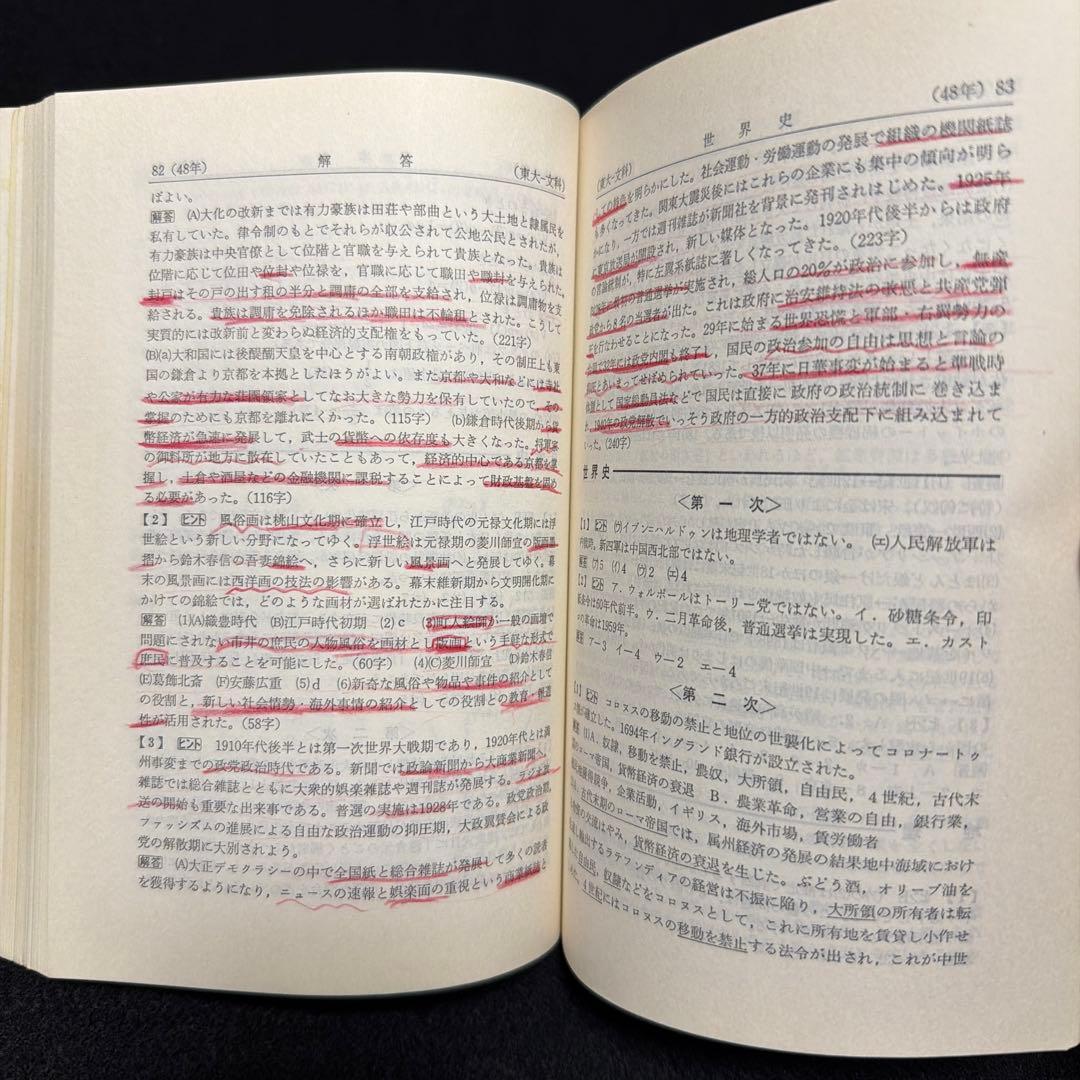 82(48年) 解答 (東大-文科)
ばよい。
解答 (A)大化の改新までは有力豪族は田荘や部曲という大土地と隷属民を
私有していた。律令制のもとでそれらが収公されて公地公民とされたが,
有力豪族は中央官僚として位階と官職を与えられて貴族となった。貴族は
位階に応じて位田や位封や位禄を,官職に応じて職田や職封を与えられた。
封戸はその戸の出す租の半分と調庸の全部を支給され,位禄は調庸物を支
給される。貴族は調庸を免除されるほか職田は不輸租とされた。こうして
実質的には改新前と変わらぬ経済的支配権をもっていた。(221字)
(B)(a)大和国には後醍醐天皇を中心とする南朝政権があり,その制圧上も東
国の鎌倉より京都を本拠としたほうがよい。また京都や大和などには寺社
や公家が有力な荘園領家としてなお大きな勢力を保有していたので,その
掌握のためにも京都を離れにくかった。(115字) (b)鎌倉時代後期から貨
幣経済が急速に発展して,武士の貨幣への依存度も大きくなった。将軍家
の御料所が地方に散在していたこともあって,経済的中心である京都を掌
握し,土倉や酒屋などの金融機関に課税することによって財政基盤を固め
る必要があった。(116字)
【2】 ヒント 風俗画は桃山文化期に確立し,江戸時代の元禄文化期には浮
世絵という新しい分野になってゆく。浮世絵は元禄期の菱川師宣の版画墨
摺から鈴木春信の吾妻錦絵へ,さらに新しい風景画へと発展してゆく。幕
末の風景画には西洋画の技法の影響がある。幕末維新期から文明開化期に
かけての錦絵では,どのような画材が選ばれたかに注目する。
解答 (1)(A)織豊時代 (B)江戸時代初期 (2)c (3)町人絵師が一般の画壇で
問題にされない市井の庶民の人物風俗を画材とし版画という手軽な形式で
庶民に普及することを可能にした。(60字) (4)(C)菱川師宣 (D)鈴木春信
(E)葛飾北斎 (F)安藤広重 (5)d (6)新奇な風俗や物品や事件の紹介として
の役割と,新しい社会情勢・海外事情の紹介としての役割との教育・報道
性が活用された。(58字)
【3】 ヒント 1910年代後半とは第一次世界大戦期であり,1920年代とは満
州事変までの政党政治時代である。新聞では政論新聞から大商業新聞へ,
雑誌では総合雑誌とともに大衆的娯楽雑誌や週刊誌が発展する。ラジオ放
送の開始も重要な出来事である。普選の実施は1928年である。政党政治期,
ファッシズムの進展による自由な政治運動の抑圧期,大政翼賛会による政
党の解散期に大別されよう。
解答 (A)大正デモクラシーの中で全国紙と総合雑誌が発展して多くの読者
を獲得するようになり,ニュースの速報と娯楽面の重視という商業紙と
(東大-文科) 世界史 (48年) 83
しての特色を明らかにした。社会運動・労働運動の発展で組織の機関紙誌
も多くなってきた。関東大震災後にはこれらの企業にも集中の傾向が明ら
かになり,一方では週刊雑誌が新聞社を背景に発刊されはじめた。1925年
に東京放送局が開設され,新しい媒体となった。1920年代後半からは政府
の言論統制が,特に左翼系紙誌に著しくなってきた。(223字)
最初の普通選挙が実施され,総人口の20%が政治に参加し,無産
政党から8名の当選者が出た。これは政府に治安維持法の改悪と共産党弾
圧を行なわせることになった。29年に始まる世界恐慌と軍部・右翼勢力の
32年には政党内閣も終了し,国民の政治参加の自由は思想と言論の
とあいまってせばめられていった。37年に日華事変が始まると準戦時
として国家総動員法などで国民は直接に政府の政治統制に巻き込ま
1940年の政党解散でいっそう政府の一方的政治支配下に組み込まれて
いった。(240字)
世界史
〈第一次〉
【1】 ヒント (ウ)イブン=ハルドゥンは地理学者ではない。(エ)人民解放軍は
内戦時。新四軍は中国西北部ではない。
解答 (ア)5 (イ)4 (ウ)2 (エ)4
【2】 ヒント ア.ウォルポールはトーリー党ではない。イ.砂糖条令,印
紙条令は60年代前半。ウ.二月革命後,普通選挙は実現した。エ.カスト
ロの革命は1959年。
解答 ア—3 イ—4 ウ—2 エ—4
〈第二次〉
【1】 ヒント コロヌスの移動の禁止と地位の世襲化によってコロナートゥ
スが確立した。1694年イングランド銀行が設立された。
解答 (1)A.奴隷,移動を禁止,農奴,大所領,自由民,4世紀,古代末
期のローマ帝国,貨幣経済の衰退 B.農業革命,営業の自由,銀行業,
植民地獲得競争,企業活動,イギリス,海外市場,賃労働者
古代末期のローマ帝国では,属州経済の発展の結果地中海域におけ
る物資の交流はやみ,貨幣経済の衰退を生じた。ぶどう酒,オリーブ油を
輸出するラテフンディアの経営は不振に陥り,大所領の所有者は転
自由民,奴隷などをコロヌスとして,これに所有地を賃貸し小作せ
4世紀にはコロヌスの移動を禁止する法令が出され,これが中世